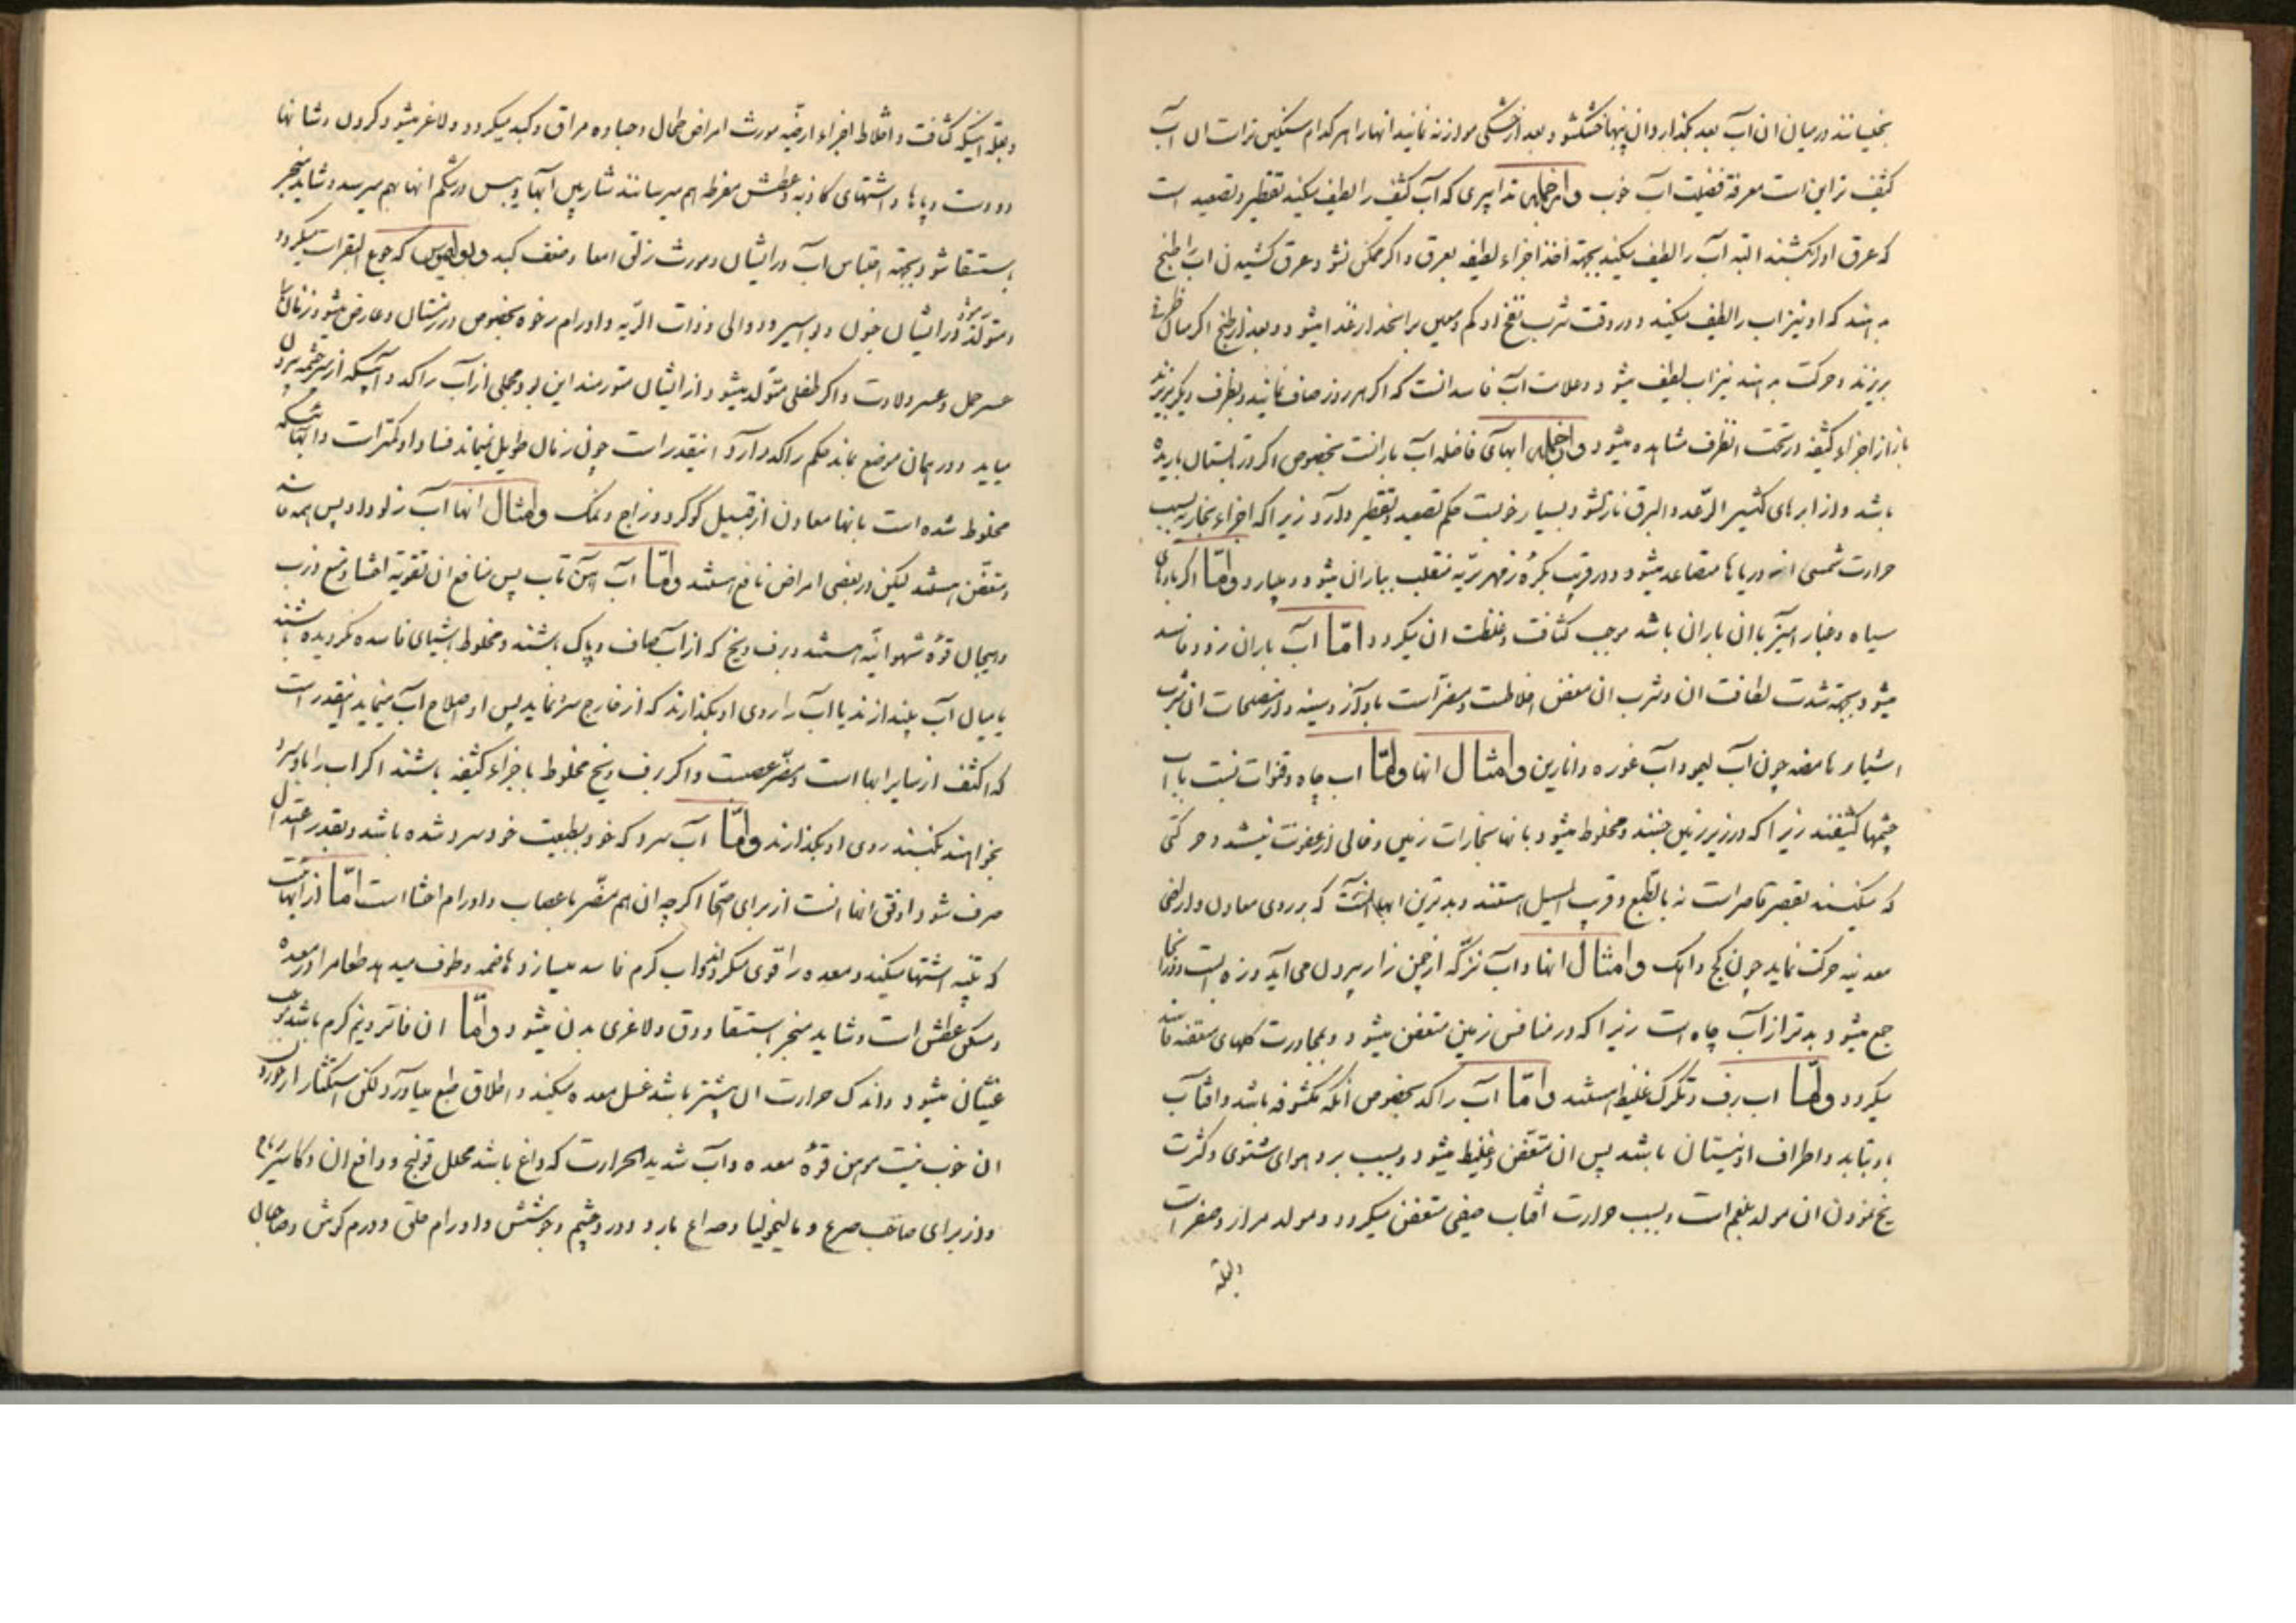 بخیسانند در میان آن آب بعد بگذارد آن پنبها خشک شود و بعد از خشکی موازنه نمایند آنها را هر کدام سنگین تر است آن آب
کثیف تر این است معرفة فضیلت آب خوب و از جمله تدابیری که آب کثیف را لطیف میکند تقطیر و تصعید است
که عرق او را بکشند البته آب را لطیف میکند بجهة اخذ اجزاء لطیفه بعرق و اگر ممکن نشود عرق کشیدن آب را طبخ
بدهند که او نیز آب را لطیف میکند و در وقت شرب نفخ او کم و معین بر انحدار غذا میشود و بعد از طبخ اگر میان ظرفی
بریزند و حرکت بدهند نیز آب لطیف میشود و علامت آب فاسد آنست که اگر هر روز صاف نمایند و بظرف دیگر بریزند
باز از اجزاء کثیفه در تحت آنظرف مشاهده میشود و از جمله آبهای فاضله آب بارانست بخصوص اگر در تابستان باریده
باشد و از ابرهای کثیر الرعد و البرق نازل شود بسیار خوبست حکم تصعید و تقطیر دارد زیرا که اجزاء بخاریه بسبب
حرارت شمسی از دریاها متصاعد میشود و در قرب بکره زمهریریه منقلب بباران میشود و میبارد و امّا اگر بادهای
سیاه و غبار آمیز با آن باران باشد موجب کثافت و غلظت آن میگردد امّا آب باران زود فاسد
میشود بجهة شدت لطافت آن و شرب آن معفن اخلاطست و مضر است باواز و سینه و از مصلحات آن شرب
اشیاء حامضه چون آب لیمو و آب غوره و انارین و امثال انها و امّا آب چاه و قنوات نسبت بآب
چشمها کثیفند زیرا که در زیر زمین هستند و مخلوط میشود بانها بخارات زمین و خالی از عفونت نیستند و حرکتی
که میکنند بقصر قاصر است نه بالطبع و قریب المسیل هستند و بدترین آبها آنست که بر روی معادن و اراضی
معدنیه حرکت نماید چون گچ و آهک و امثال انها و آب نزّ که از چمن زار بیرون می آید و زه است و در آنجا
جمع میشود بدتر از آب چاه است زیرا که در منافس زمین متعفن میشود و بمجاورت گلهای متعفنه فاسد
میگردد و امّا آب برف و تگرگ غلیظ هستند و امّا آب راکد بخصوص آنکه مکشوفه باشد و آفتاب
باو بتابد و اطراف او نیستان باشد پس آن متعفن و غلیظ میشود و بسبب برد هوای شتوی و کثرت
یخ نمودن آن مولد بلغم است و بسبب حرارت آفتاب صیفی متعفن میگردد و مولد مرار و صفر است
و بعلة اینکه کثافت و اختلاط اجزاء ارضیّه مورث امراض طحال و جساوه مراق و کبد میگردد و لاغر میشود گردن و شانها
و دست و پاها و اشتهای کاذبه و عطش مفرط بهم میرسانند شاربین آبها و یبس در شکم آنها بهم میرسد و شاید منجر
باستسقا شود بجهة احتباس آب در ایشان و مورث زلق امعا و ضعف کبد و بولیموس که جوع البقر است میگردد
و متولد میشود در ایشان جنون و بواسیر و دوالی و ذات الریه و اورام رخوه بخصوص در زمستان و عارض میشود زنان را
عسر حمل و عسر ولادت و اگر طفلی متولد میشود از ایشان متورمند این بود مجملی از آب راکد و آبیکه از سر چشمه بیرون
میاید و در همان موضع بماند حکم راکد دارد اینقدر است چون زمان طویل نمیماند فساد او کمتر است و آبهائیکه
مخلوط شده است بانها معادن از قبیل گوگرد و زاج و نمک و امثال انها آب زلو دارد پس همه فاسد
و متعفن هستند لیکن در بعضی امراض نافع هستند و امّا آب آهن تاب پس منافع آن تقویة احشا و منع ذرب
و هیجان قوّه شهوانیّه هستند و برف و یخ که از آب صاف و پاک باشند و مخلوط باشیای فاسده نگردیده باشند
یا میان آب بیندازند یا آب را روی او بگذارند که از خارج سرد نماید پس او اصلاح آب مینماید اینقدر است
که اکثف از سایر آبها است و مضر عصبست و اگر برف و یخ مخلوط باجزاء کثیفه باشند اگر آب را باو سرد
بخواهند بکنند روی او بگذارند و امّا آب سرد که خود بطبیعت خود سرد شده باشد و بقدر اعتدال
صرف شود اوفق آنها آنست از برای اصحّا اگر چه آن هم مضّر باعصاب و اورام احشا است امّا از آبهاست
که تنبیه اشتها میکند و معده را قوی میگرداند و آب گرم فاسد میسازد هاضمه و طوف میدهد طعام را در معده
و مسکن عطش است و شاید منجر باستسقا و دق و لاغری بدن میشود و امّا آن فاتر و نیم گرم باشد موجب
غثیان میشود و اندک حرارت آن بیشتر باشد غسل معده میکند و اطلاق طبع میاورد لکن استکثار از خوردن
آن خوب نیست موهن قوّه معده و آب شدید الحرارت که داغ باشد محلل قولنج و دافع آن و کاسر ریاح
و از برای صاحب صرع و مالیخولیا و صداع بارد و درد چشم و جوشش و اورام حلق و ورم گوش و صاحبان
و بعلة